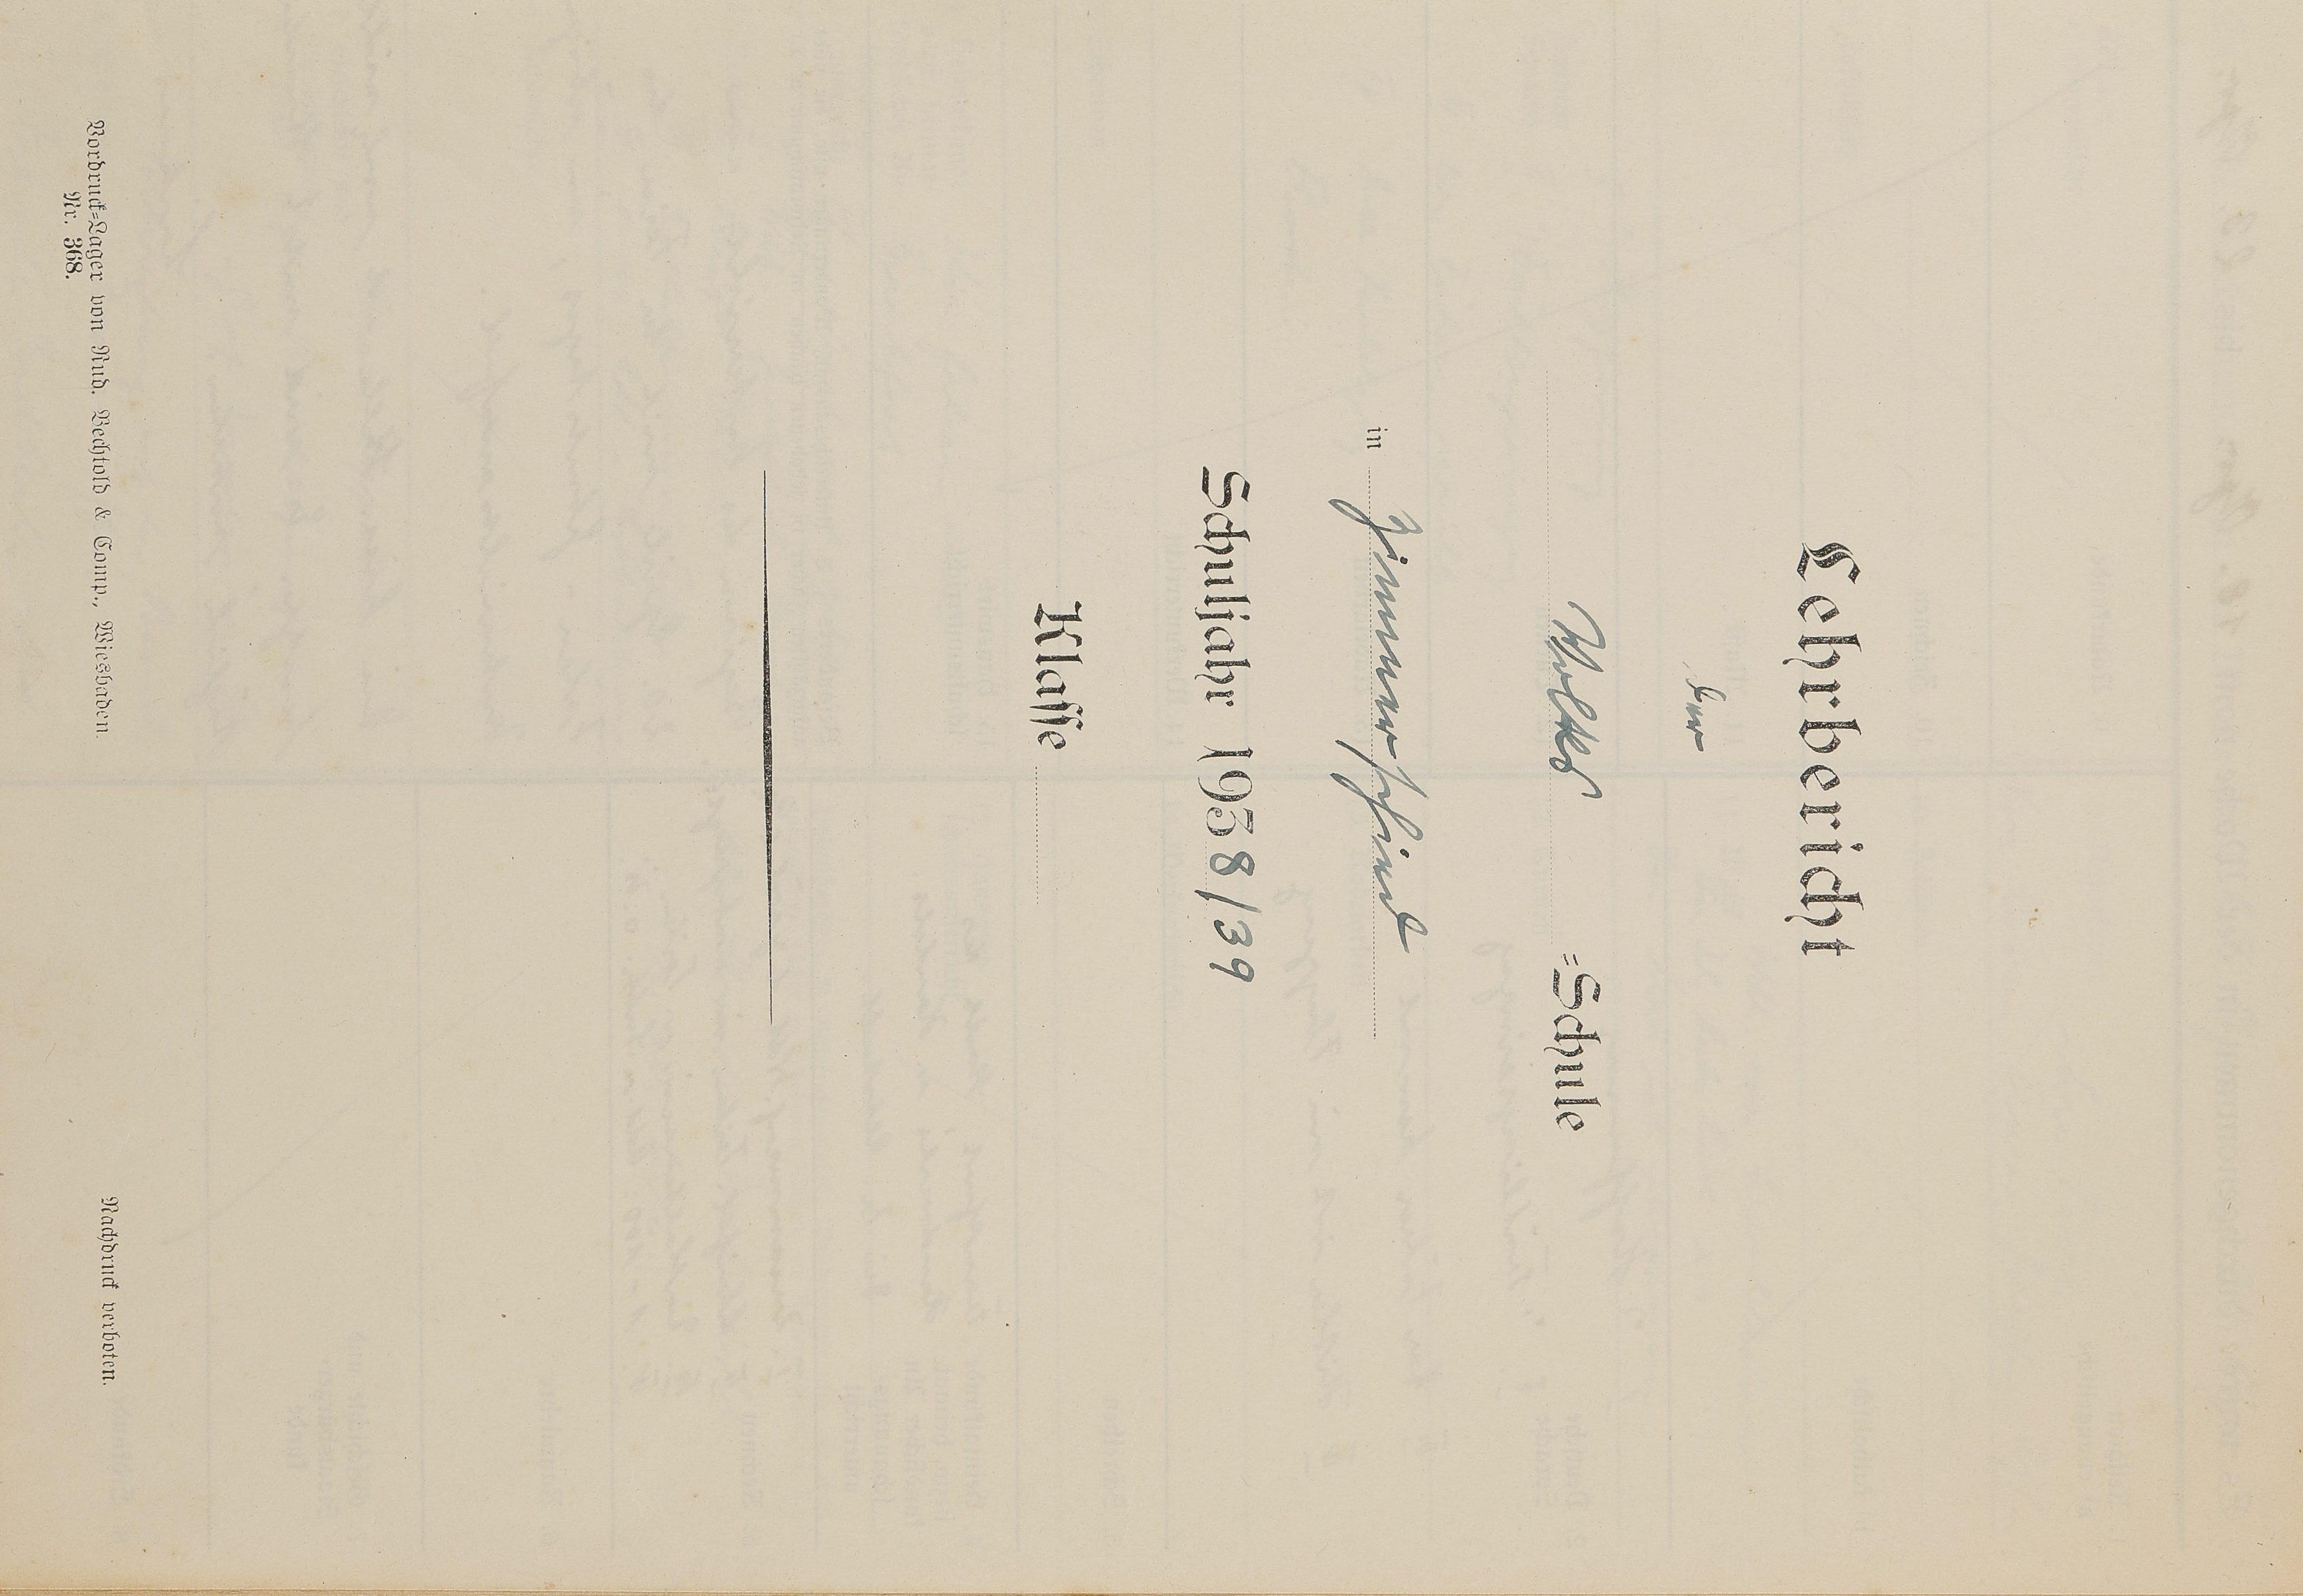 Lehrbericht
der
Volks =Schule
in Zimmerschied
Schuljahr 1938/39
Klasse
Vordruck=Lager von Rud. Bechtold & Comp., Wiesbaden.
Nr. 368.
Nachdruck verboten.